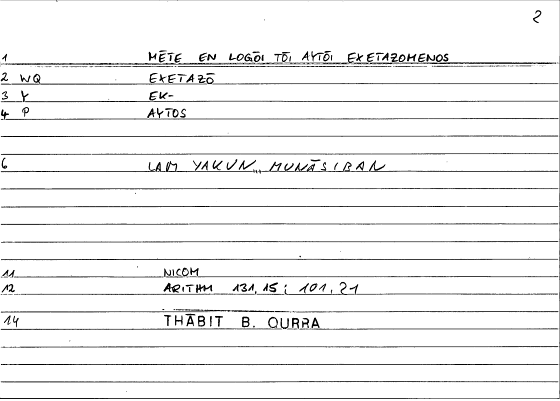 2
1 MĒTE EN LOGŌI TŌI AYTŌI EXETAZOMENOS
2 WQ EXETAZŌ
3 Y EK-
4 P AYTOS
6 LAM YAKUN... MUNĀSIBAN
11 NICOM
12 ARITHM 131,15; 101,21
14 THĀBIT B. QURRA